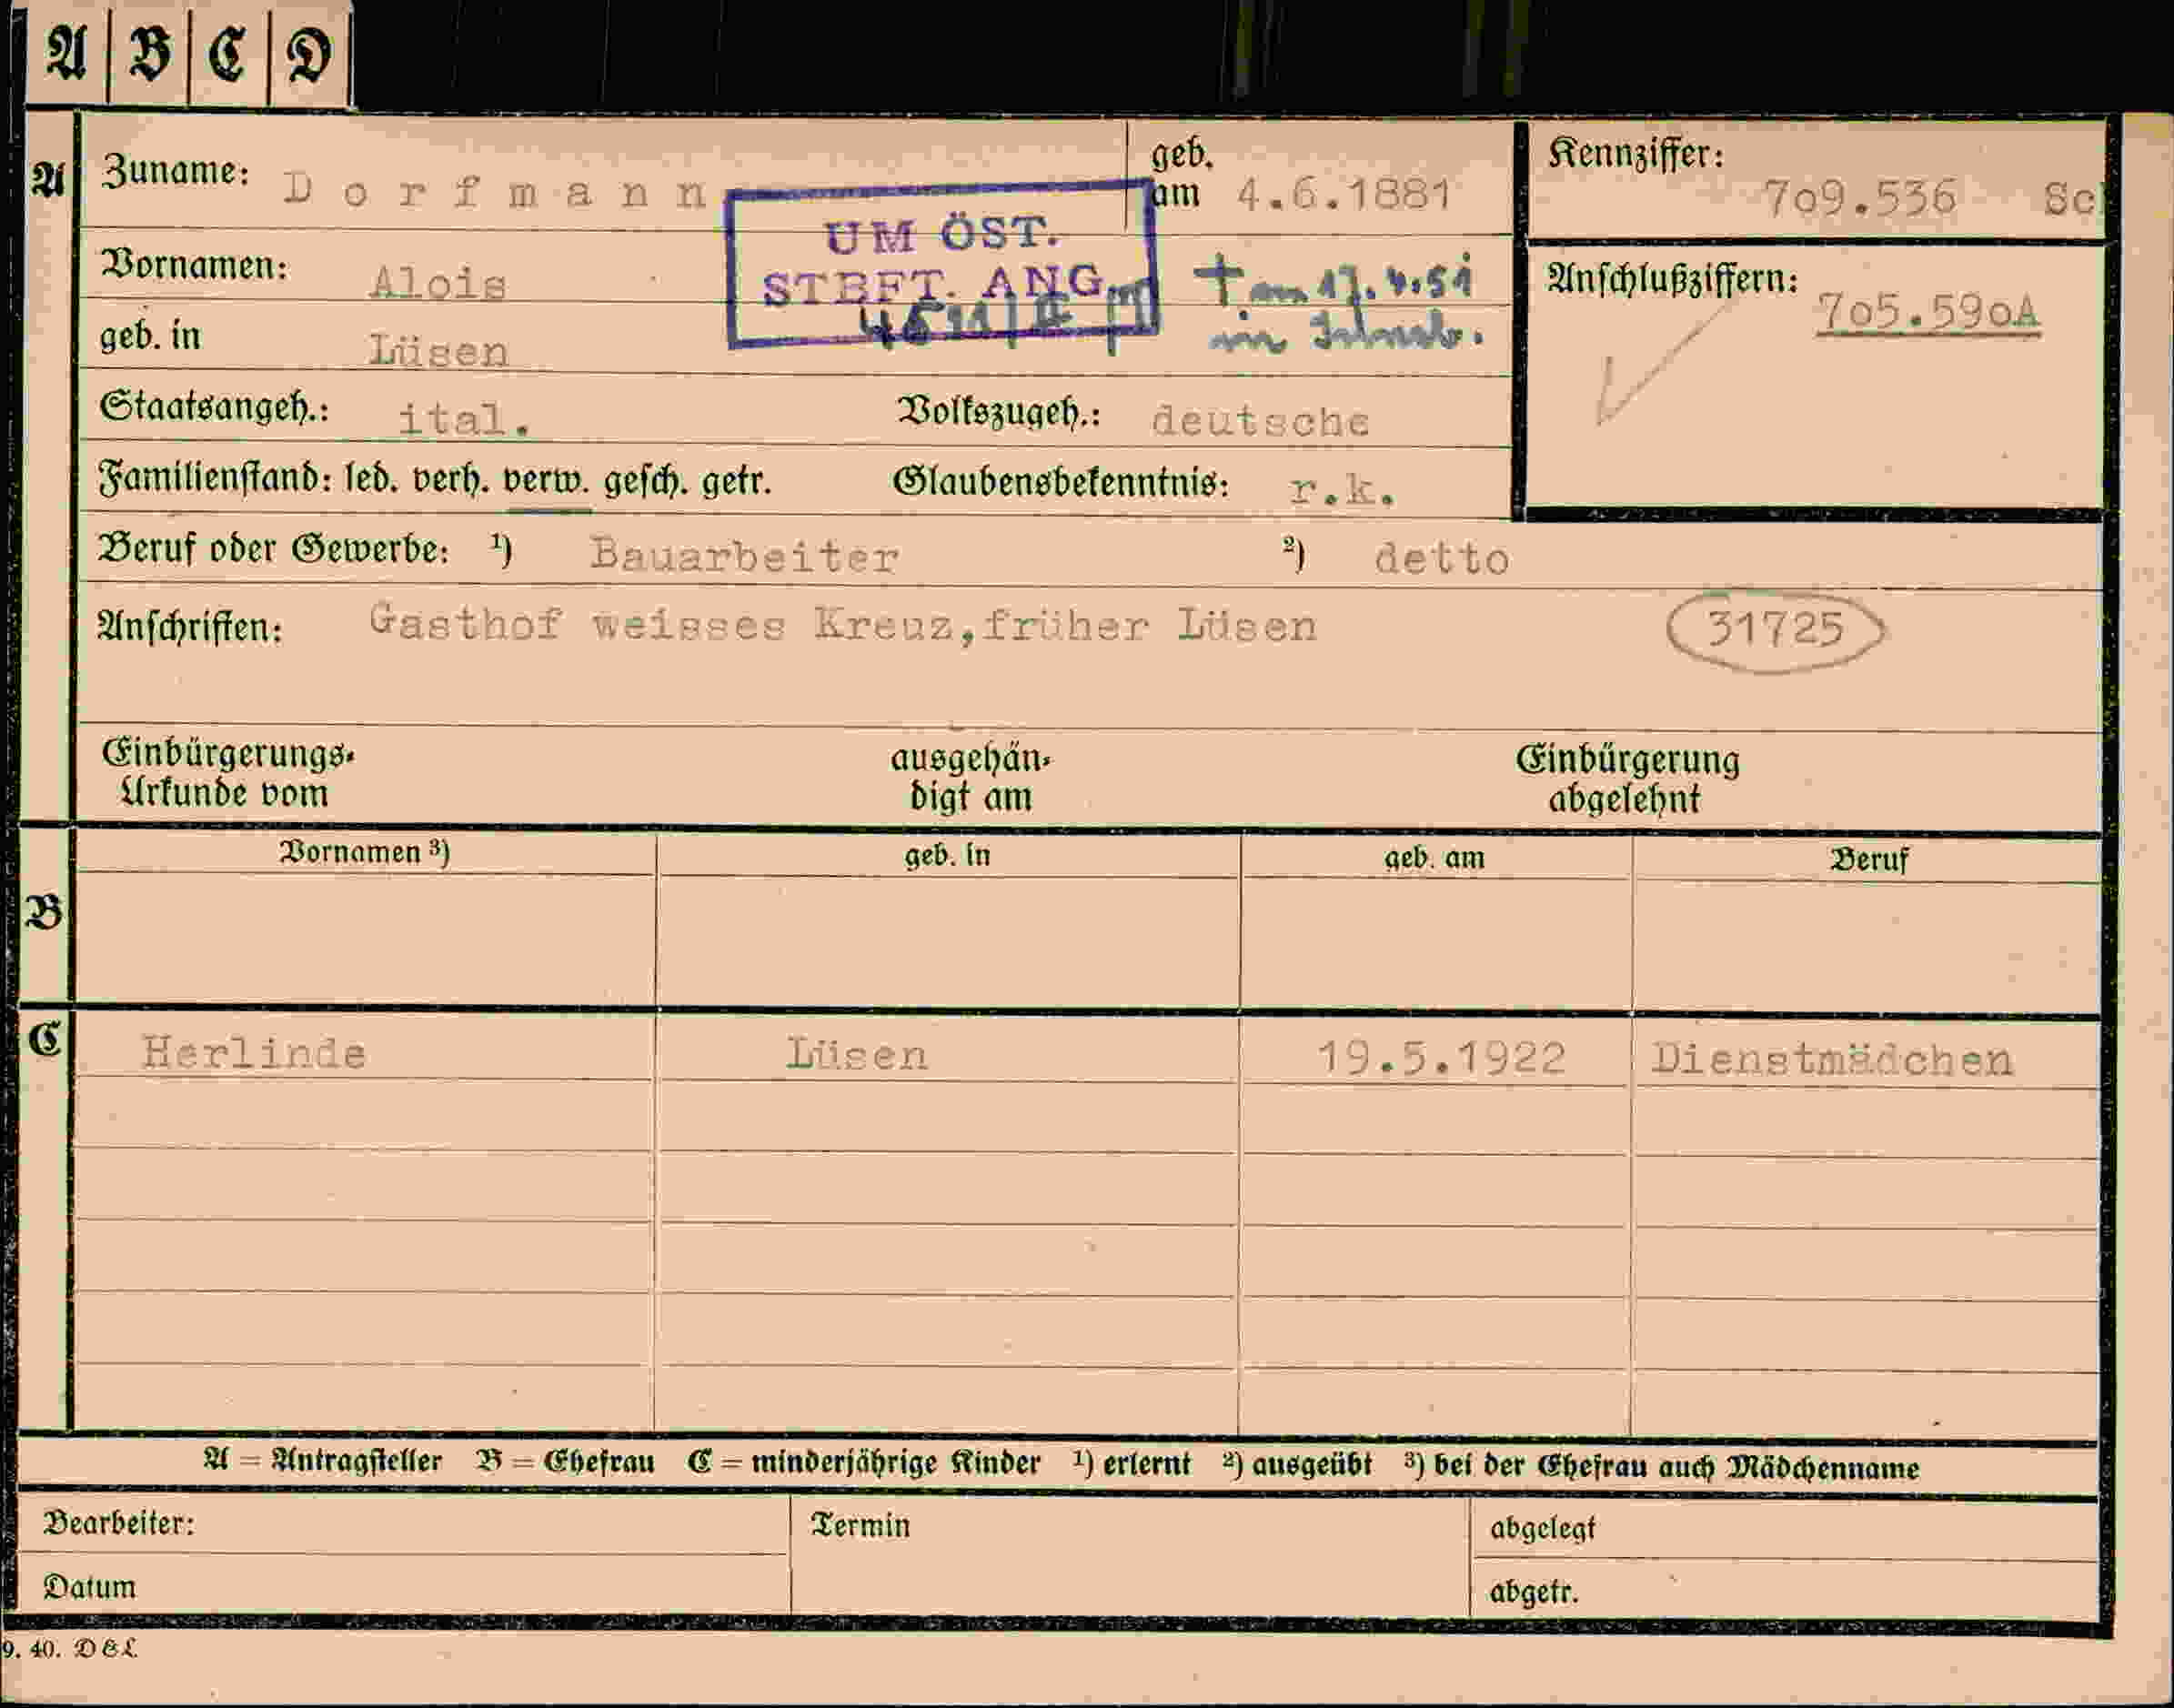 A B C D
A Zuname: Dorfmann geb. am 4.6.1881 Kennziffer: 7o9.536 Sc
UM ÖST.
STBFT. ANG.
Vornamen: Alois † am 17.4.51 Anschlußziffern: 7o5.59oA
geb. in Lüsen in
Staatsangeh.: ital. Volkszugeh.: deutsche
Familienstand: led. verh. verw. gesch. getr. Glaubensbekenntnis: r.k.
Beruf oder Gewerbe: ¹) Bauarbeiter ²) detto
Anschriften: Gasthof weisses Kreuz,früher Lüsen 31725
Einbürgerungs-Urkunde vom ausgehändigt am Einbürgerung abgelehnt
Vornamen ³) geb. in geb. am Beruf
B
C Herlinde Lüsen 19.5.1922 Dienstmädchen
A = Antragsteller B = Ehefrau C = minderjährige Kinder ¹) erlernt ²) ausgeübt ³) bei der Ehefrau auch Mädchenname
Bearbeiter: Termin abgelegt
Datum abgetr.
9. 40. D & L